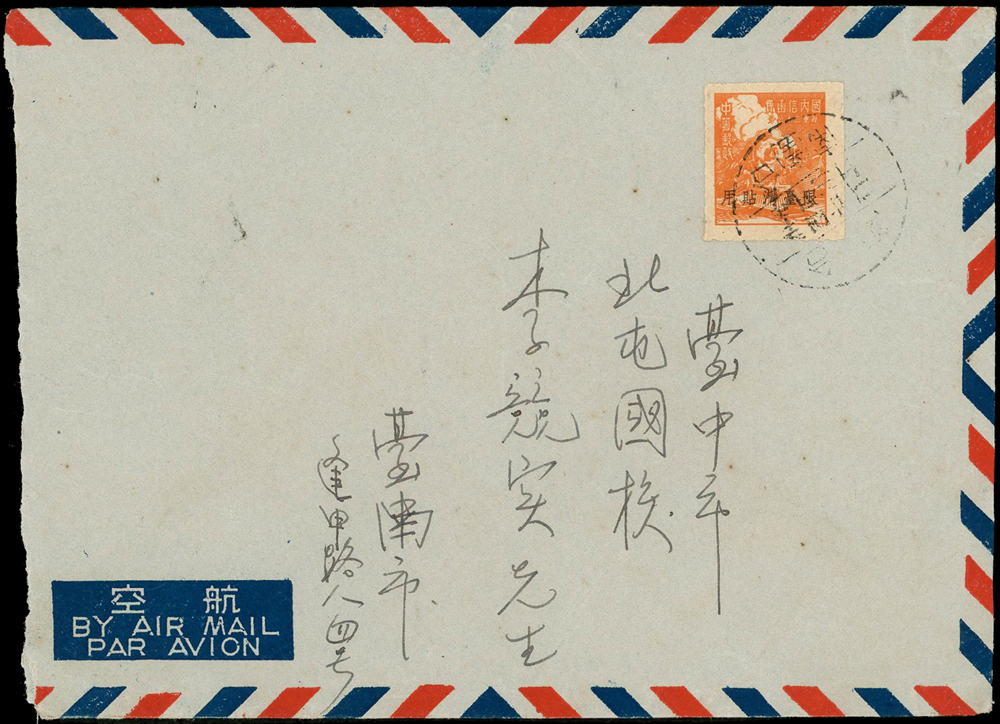 國內信函費
中華郵政
限臺灣貼用
臺中市
北屯國校
李競实先生
臺南市
逢甲路八四号
航空
BY AIR MAIL
PAR AVION